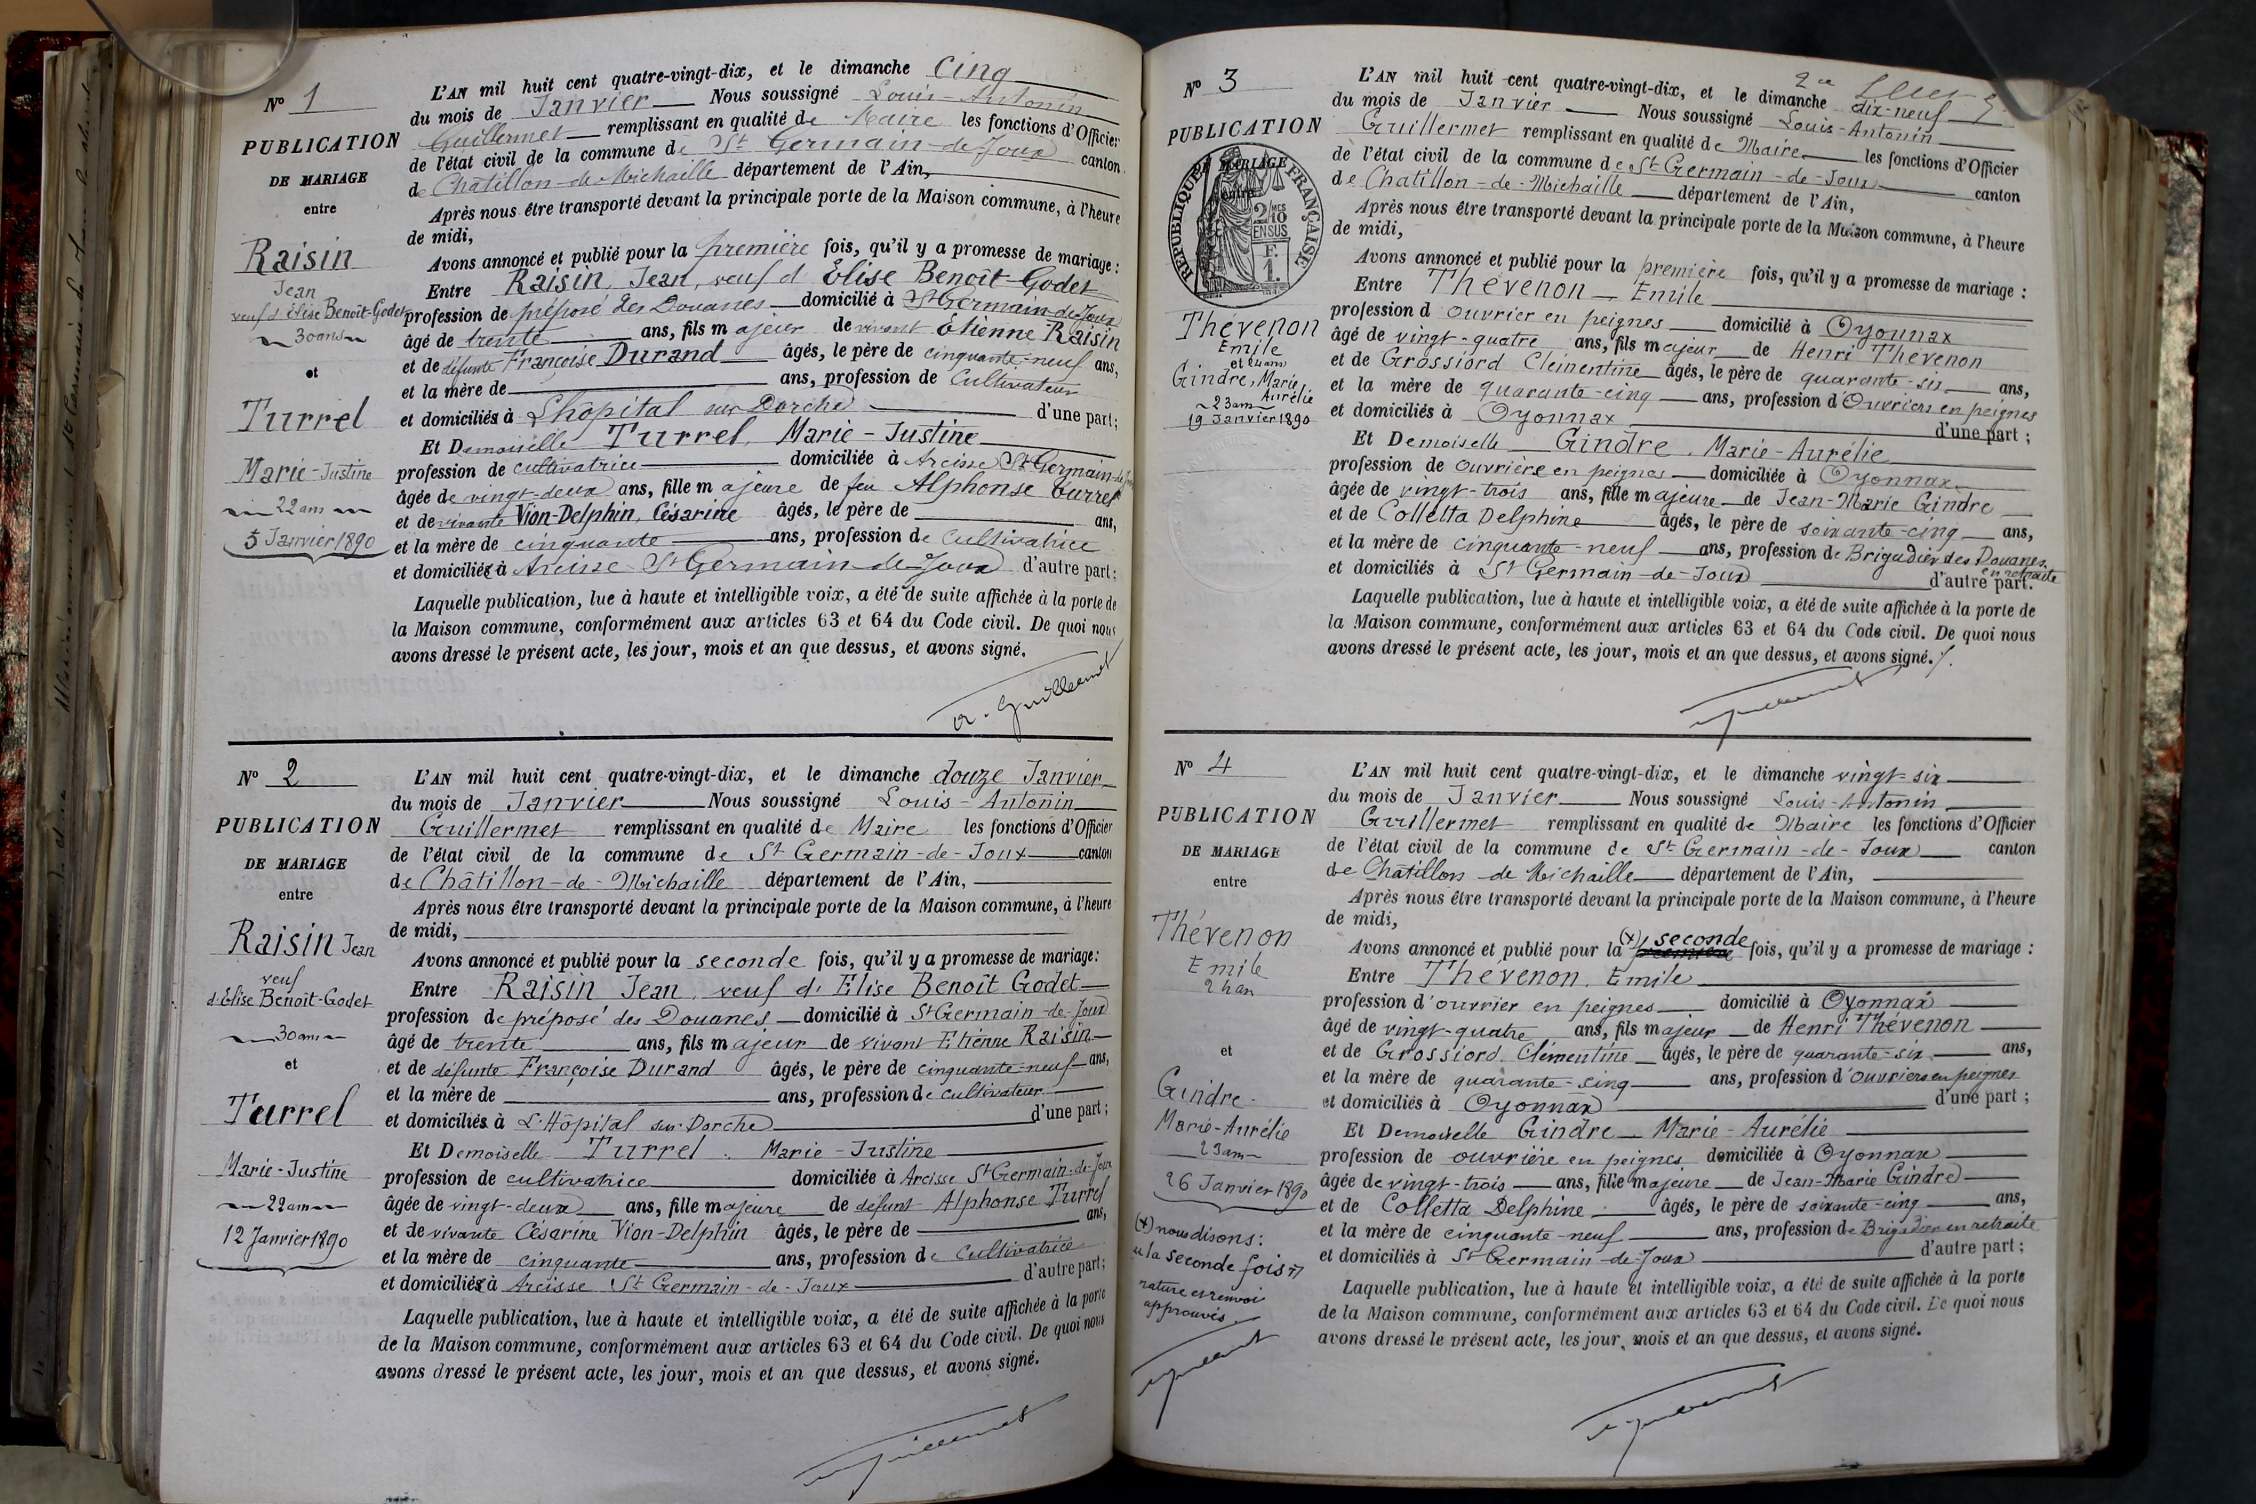 Nº 1
PUBLICATION
DE MARIAGE
entre
Raisin
Jean
veuf d'Elise Benoît-Godet
30 ans
et
Turrel
Marie-Justine
22 ans
5 Janvier 1890
L'AN mil huit cent quatre-vingt-dix, et le dimanche cinq
du mois de Janvier Nous soussigné Louis-Antonin
Guillermet remplissant en qualité de Maire les fonctions d'Officier
de l'état civil de la commune de St Germain-de-Joux canton
de Châtillon-de-Michaille département de l'Ain,
Après nous être transporté devant la principale porte de la Maison commune, à l'heure
de midi,
Avons annoncé et publié pour la première fois, qu'il y a promesse de mariage :
Entre Raisin, Jean, veuf d'Elise Benoît-Godet
profession de préposé des Douanes domicilié à St Germain-de-Joux
âgé de trente ans, fils majeur de vivant Etienne Raisin
et de défunte Françoise Durand âgés, le père de cinquante-neuf ans,
et la mère de ans, profession de Cultivateur
et domiciliés à Lhôpital sur Dorche d'une part ;
Et Demoiselle Turrel, Marie-Justine
profession de cultivatrice domiciliée à Arcisse St Germain-de-Joux
âgée de vingt-deux ans, fille majeure de feu Alphonse Turrel
et de vivante Vion-Delphin, Césarine âgés, le père de ans,
et la mère de cinquante ans, profession de Cultivatrice
et domiciliés à Arcisse St Germain-de-Joux d'autre part ;
Laquelle publication, lue à haute et intelligible voix, a été de suite affichée à la porte de
la Maison commune, conformément aux articles 63 et 64 du Code civil. De quoi nous
avons dressé le présent acte, les jour, mois et an que dessus, et avons signé.
A. Guillermet
Nº 2
PUBLICATION
DE MARIAGE
entre
Raisin Jean
veuf
d'Elise Benoit-Godet
30 ans
et
Turrel
Marie-Justine
22 ans
12 Janvier 1890
L'AN mil huit cent quatre-vingt-dix, et le dimanche douze Janvier
du mois de Janvier Nous soussigné Louis-Antonin
Guillermet remplissant en qualité de Maire les fonctions d'Officier
de l'état civil de la commune de St Germain-de-Joux canton
de Châtillon-de-Michaille département de l'Ain,
Après nous être transporté devant la principale porte de la Maison commune, à l'heure
de midi,
Avons annoncé et publié pour la seconde fois, qu'il y a promesse de mariage :
Entre Raisin Jean, veuf d'Elise Benoît Godet
profession de préposé des Douanes domicilié à St Germain-de-Joux
âgé de trente ans, fils majeur de vivant Etienne Raisin
et de défunte Françoise Durand âgés, le père de cinquante-neuf ans,
et la mère de ans, profession de cultivateur
et domiciliés à L'Hôpital sur Dorche d'une part ;
Et Demoiselle Turrel, Marie-Justine
profession de cultivatrice domiciliée à Arcisse St Germain-de-Joux
âgée de vingt-deux ans, fille majeure de défunt Alphonse Turrel
et de vivante Césarine Vion-Delphin âgés, le père de ans,
et la mère de cinquante ans, profession de Cultivatrice
et domiciliés à Arcisse St Germain-de-Joux d'autre part ;
Laquelle publication, lue à haute et intelligible voix, a été de suite affichée à la porte
de la Maison commune, conformément aux articles 63 et 64 du Code civil. De quoi nous
avons dressé le présent acte, les jour, mois et an que dessus, et avons signé.
Nº 3
PUBLICATION
DE MARIAGE
entre
RÉPUBLIQUE FRANÇAISE
2/10 MES
EN SUS
F.
1.
Thévenon
Emile
et 24 ans
Gindre, Marie
Aurélie
23 ans
19 Janvier 1890
L'AN mil huit cent quatre-vingt-dix, et le dimanche dix-neuf
du mois de Janvier Nous soussigné Louis-Antonin
Guillermet remplissant en qualité de Maire les fonctions d'Officier
de l'état civil de la commune de St Germain-de-Joux canton
de Chatillon-de-Michaille département de l'Ain,
Après nous être transporté devant la principale porte de la Maison commune, à l'heure
de midi,
Avons annoncé et publié pour la première fois, qu'il y a promesse de mariage :
Entre Thévenon Emile
profession d'ouvrier en peignes domicilié à Oyonnax
âgé de vingt-quatre ans, fils majeur de Henri Thévenon
et de Grossiord Clémentine âgés, le père de quarante-six ans,
et la mère de quarante-cinq ans, profession d'Ouvriers en peignes
et domiciliés à Oyonnax d'une part ;
Et Demoiselle Gindre, Marie-Aurélie
profession de ouvrière en peignes domiciliée à Oyonnax
âgée de vingt-trois ans, fille majeure de Jean-Marie Gindre
et de Colletta Delphine âgés, le père de soixante-cinq ans,
et la mère de cinquante-neuf ans, profession de Brigadier des Douanes
en retraite
et domiciliés à St Germain-de-Joux d'autre part.
Laquelle publication, lue à haute et intelligible voix, a été de suite affichée à la porte de
la Maison commune, conformément aux articles 63 et 64 du Code civil. De quoi nous
avons dressé le présent acte, les jour, mois et an que dessus, et avons signé.
Nº 4
PUBLICATION
DE MARIAGE
entre
Thévenon
Emile
24 an
et
Gindre
Marie-Aurélie
23 ans
26 Janvier 1890
(x) nous disons :
la seconde fois
rature et renvoi
approuvés
L'AN mil huit cent quatre-vingt-dix, et le dimanche vingt-six
du mois de Janvier Nous soussigné Louis-Antonin
Guillermet remplissant en qualité de Maire les fonctions d'Officier
de l'état civil de la commune de St Germain-de-Joux canton
de Châtillon-de-Michaille département de l'Ain,
Après nous être transporté devant la principale porte de la Maison commune, à l'heure
de midi,
Avons annoncé et publié pour la (x) seconde fois, qu'il y a promesse de mariage :
Entre Thévenon, Emile
profession d'ouvrier en peignes domicilié à Oyonnax
âgé de vingt-quatre ans, fils majeur de Henri Thévenon
et de Grossiord Clémentine âgés, le père de quarante-six ans,
et la mère de quarante-cinq ans, profession d'ouvriers en peignes
et domiciliés à Oyonnax d'une part ;
Et Demoiselle Gindre Marie-Aurélie
profession de ouvrière en peignes domiciliée à Oyonnax
âgée de vingt-trois ans, fille majeure de Jean-Marie Gindre
et de Colletta Delphine âgés, le père de soixante-cinq ans,
et la mère de cinquante-neuf ans, profession de Brigadier en retraite
et domiciliés à St Germain-de-Joux d'autre part ;
Laquelle publication, lue à haute et intelligible voix, a été de suite affichée à la porte
de la Maison commune, conformément aux articles 63 et 64 du Code civil. De quoi nous
avons dressé le présent acte, les jour, mois et an que dessus, et avons signé.